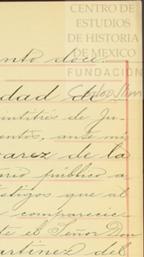 CENTRO DE
ESTUDIOS
DE HISTORIA
DE MEXICO
FUNDACIÓN
nto doce.
dad de
entitrés de Ju-
entos, ante mi
arez de la
rio público a
stigos que al
comparecie-
te el Señor Don
artinez del